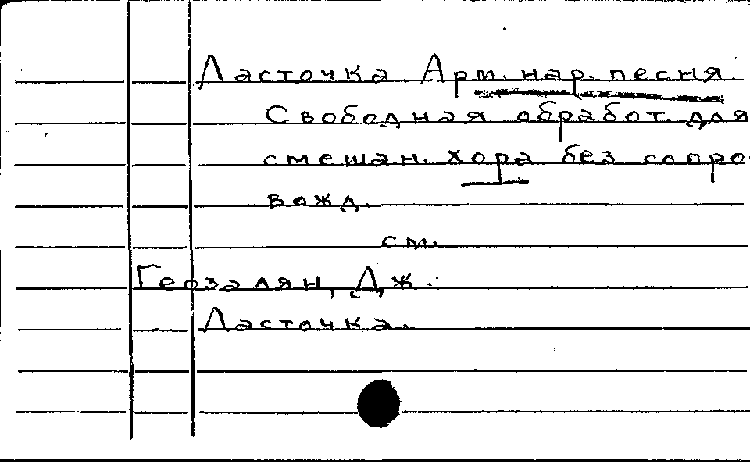 Ласточка Арм. нар. песня
Свободная обработ. для
смешан. хора без сопро
вожд.
см.
Герзалян, Дж.
Ласточка.